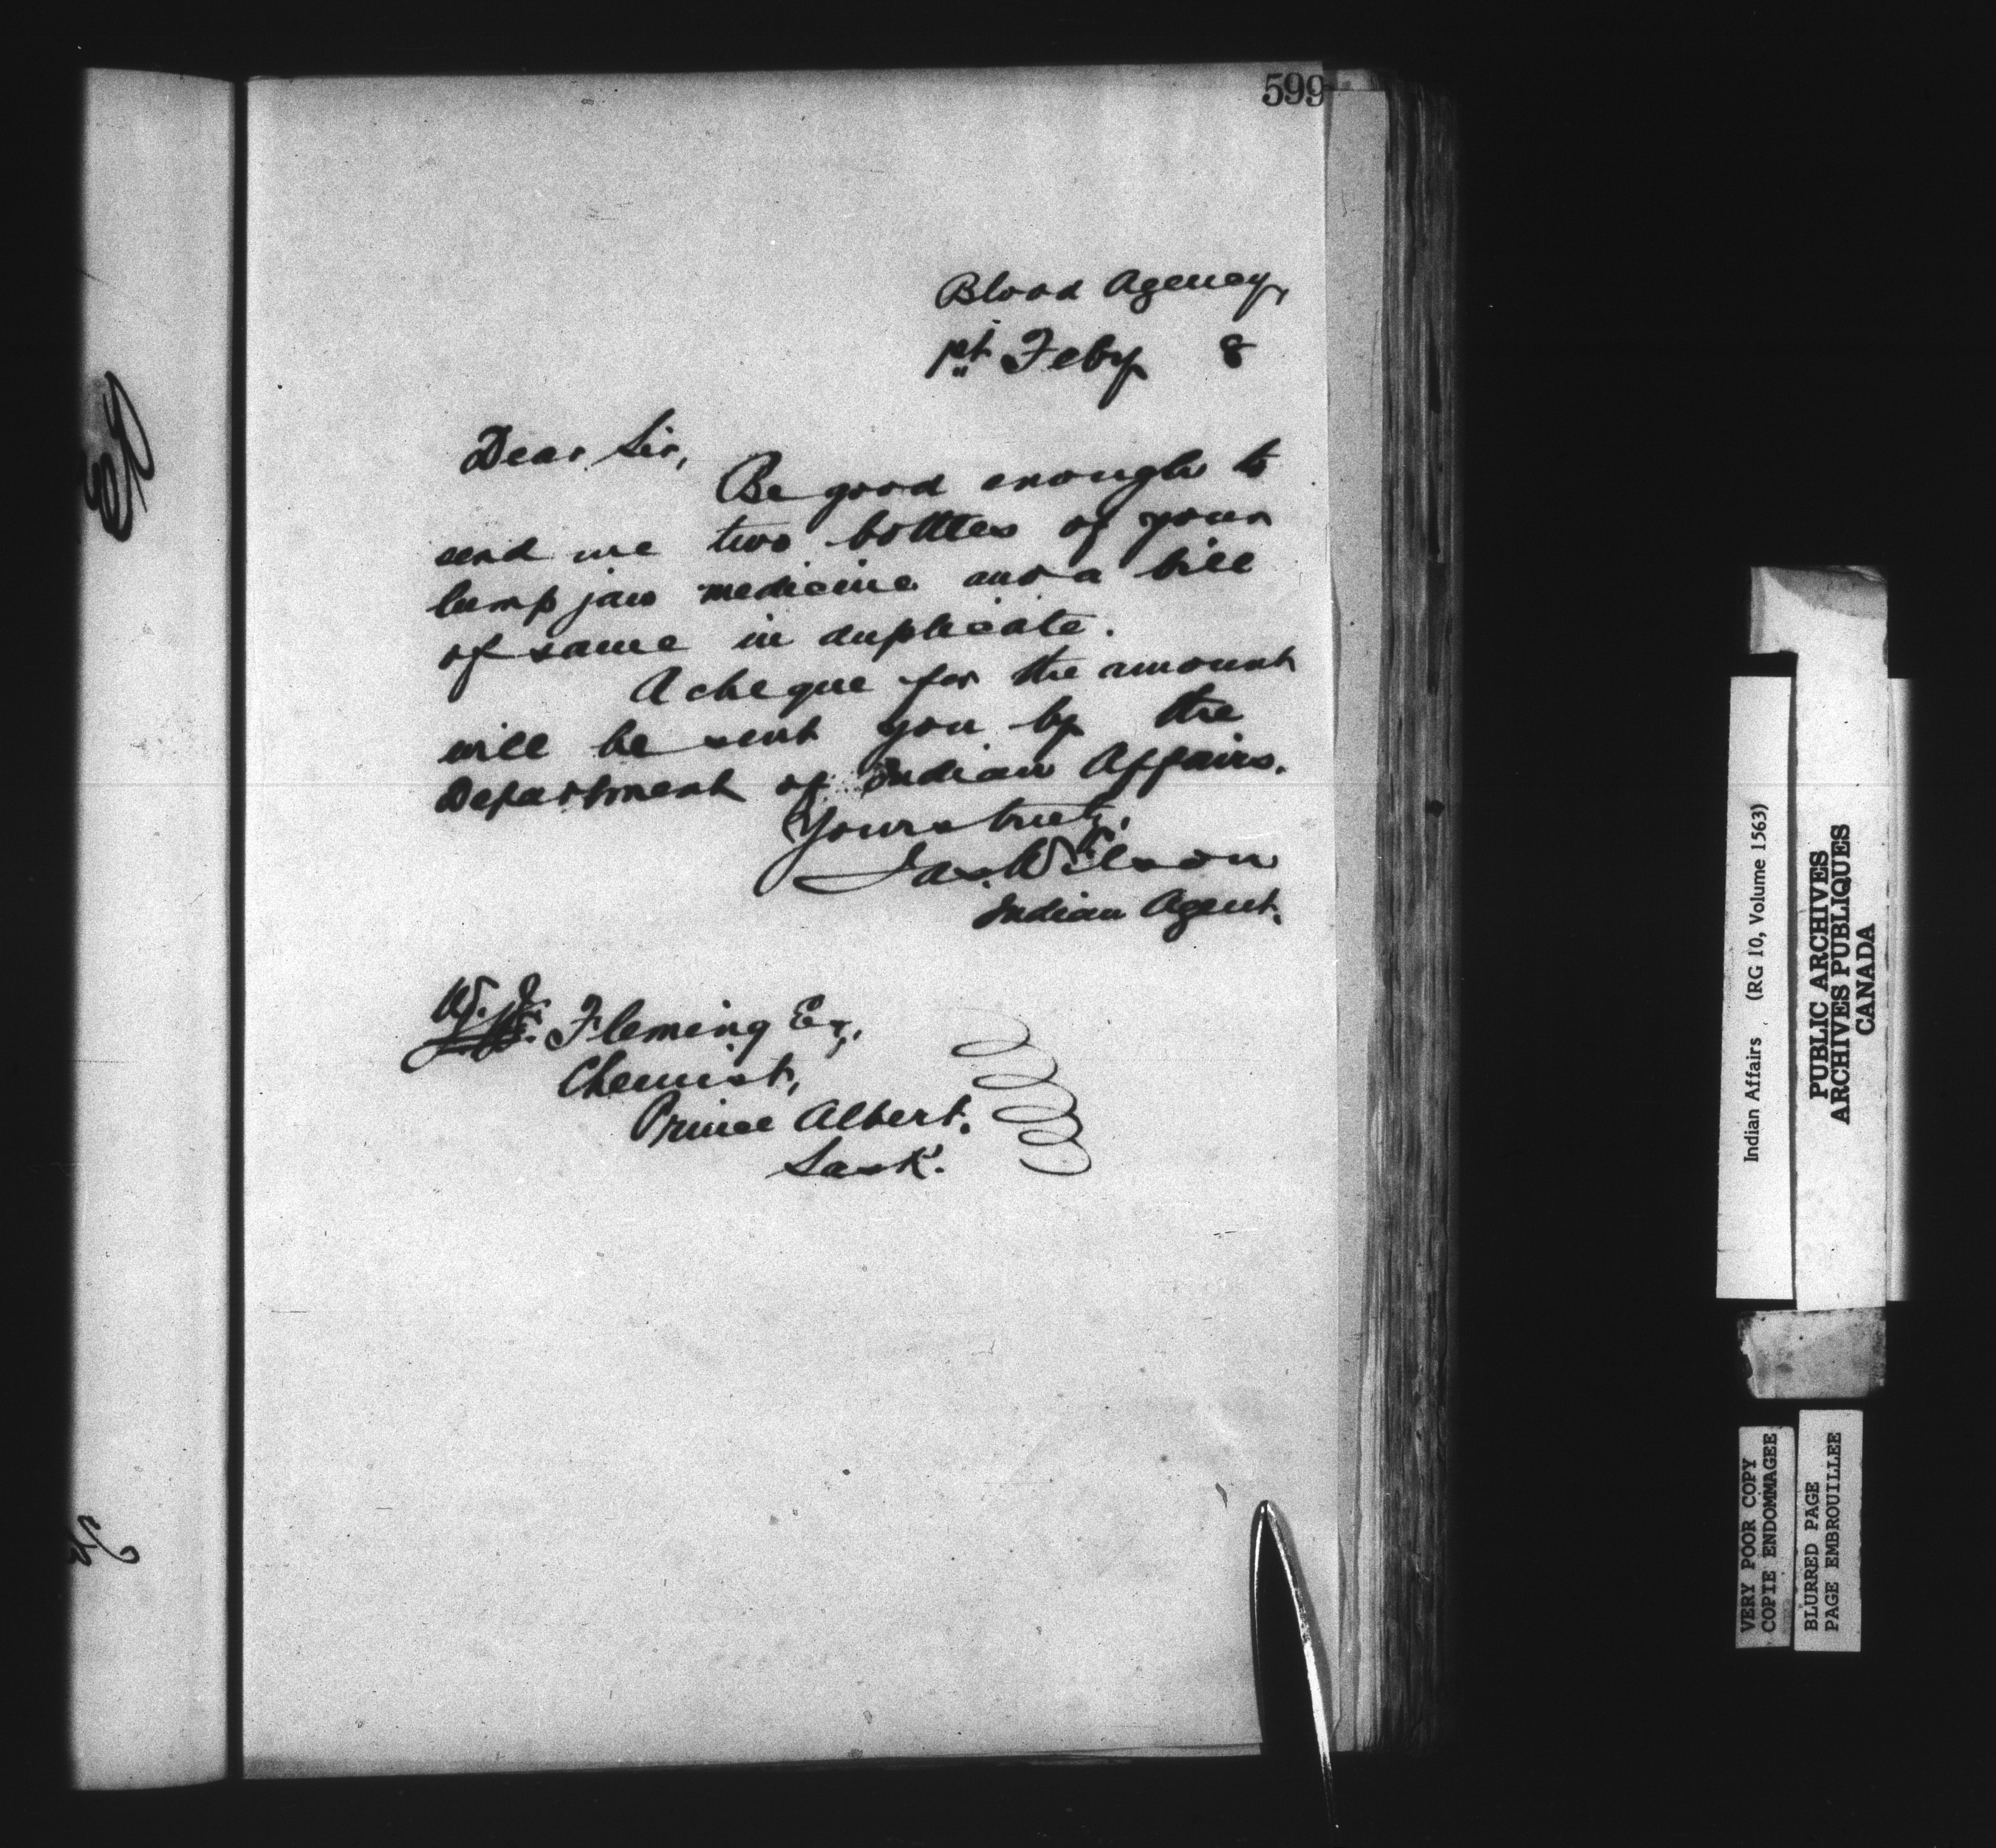 599
Blood Agency,
1st Feby 8
Dear Sir,
Be good enough to
send me two bottles of your
lump jaw medicine and a bill
of same in duplicate.
A cheque for the amount
will be sent you by the
Department of Indian Affairs.
Yours truly,
Jas. Wilson
Indian Agent.
W. J.
Fleming Eq,
Chemist,
Prince Albert.
Sask.
Indian Affairs (RG 10, Volume 1563)
PUBLIC ARCHIVES
ARCHIVES PUBLIQUES
CANADA
VERY POOR COPY
COPIE ENDOMMAGEE
BLURRED PAGE
PAGE EMBROUILLEE